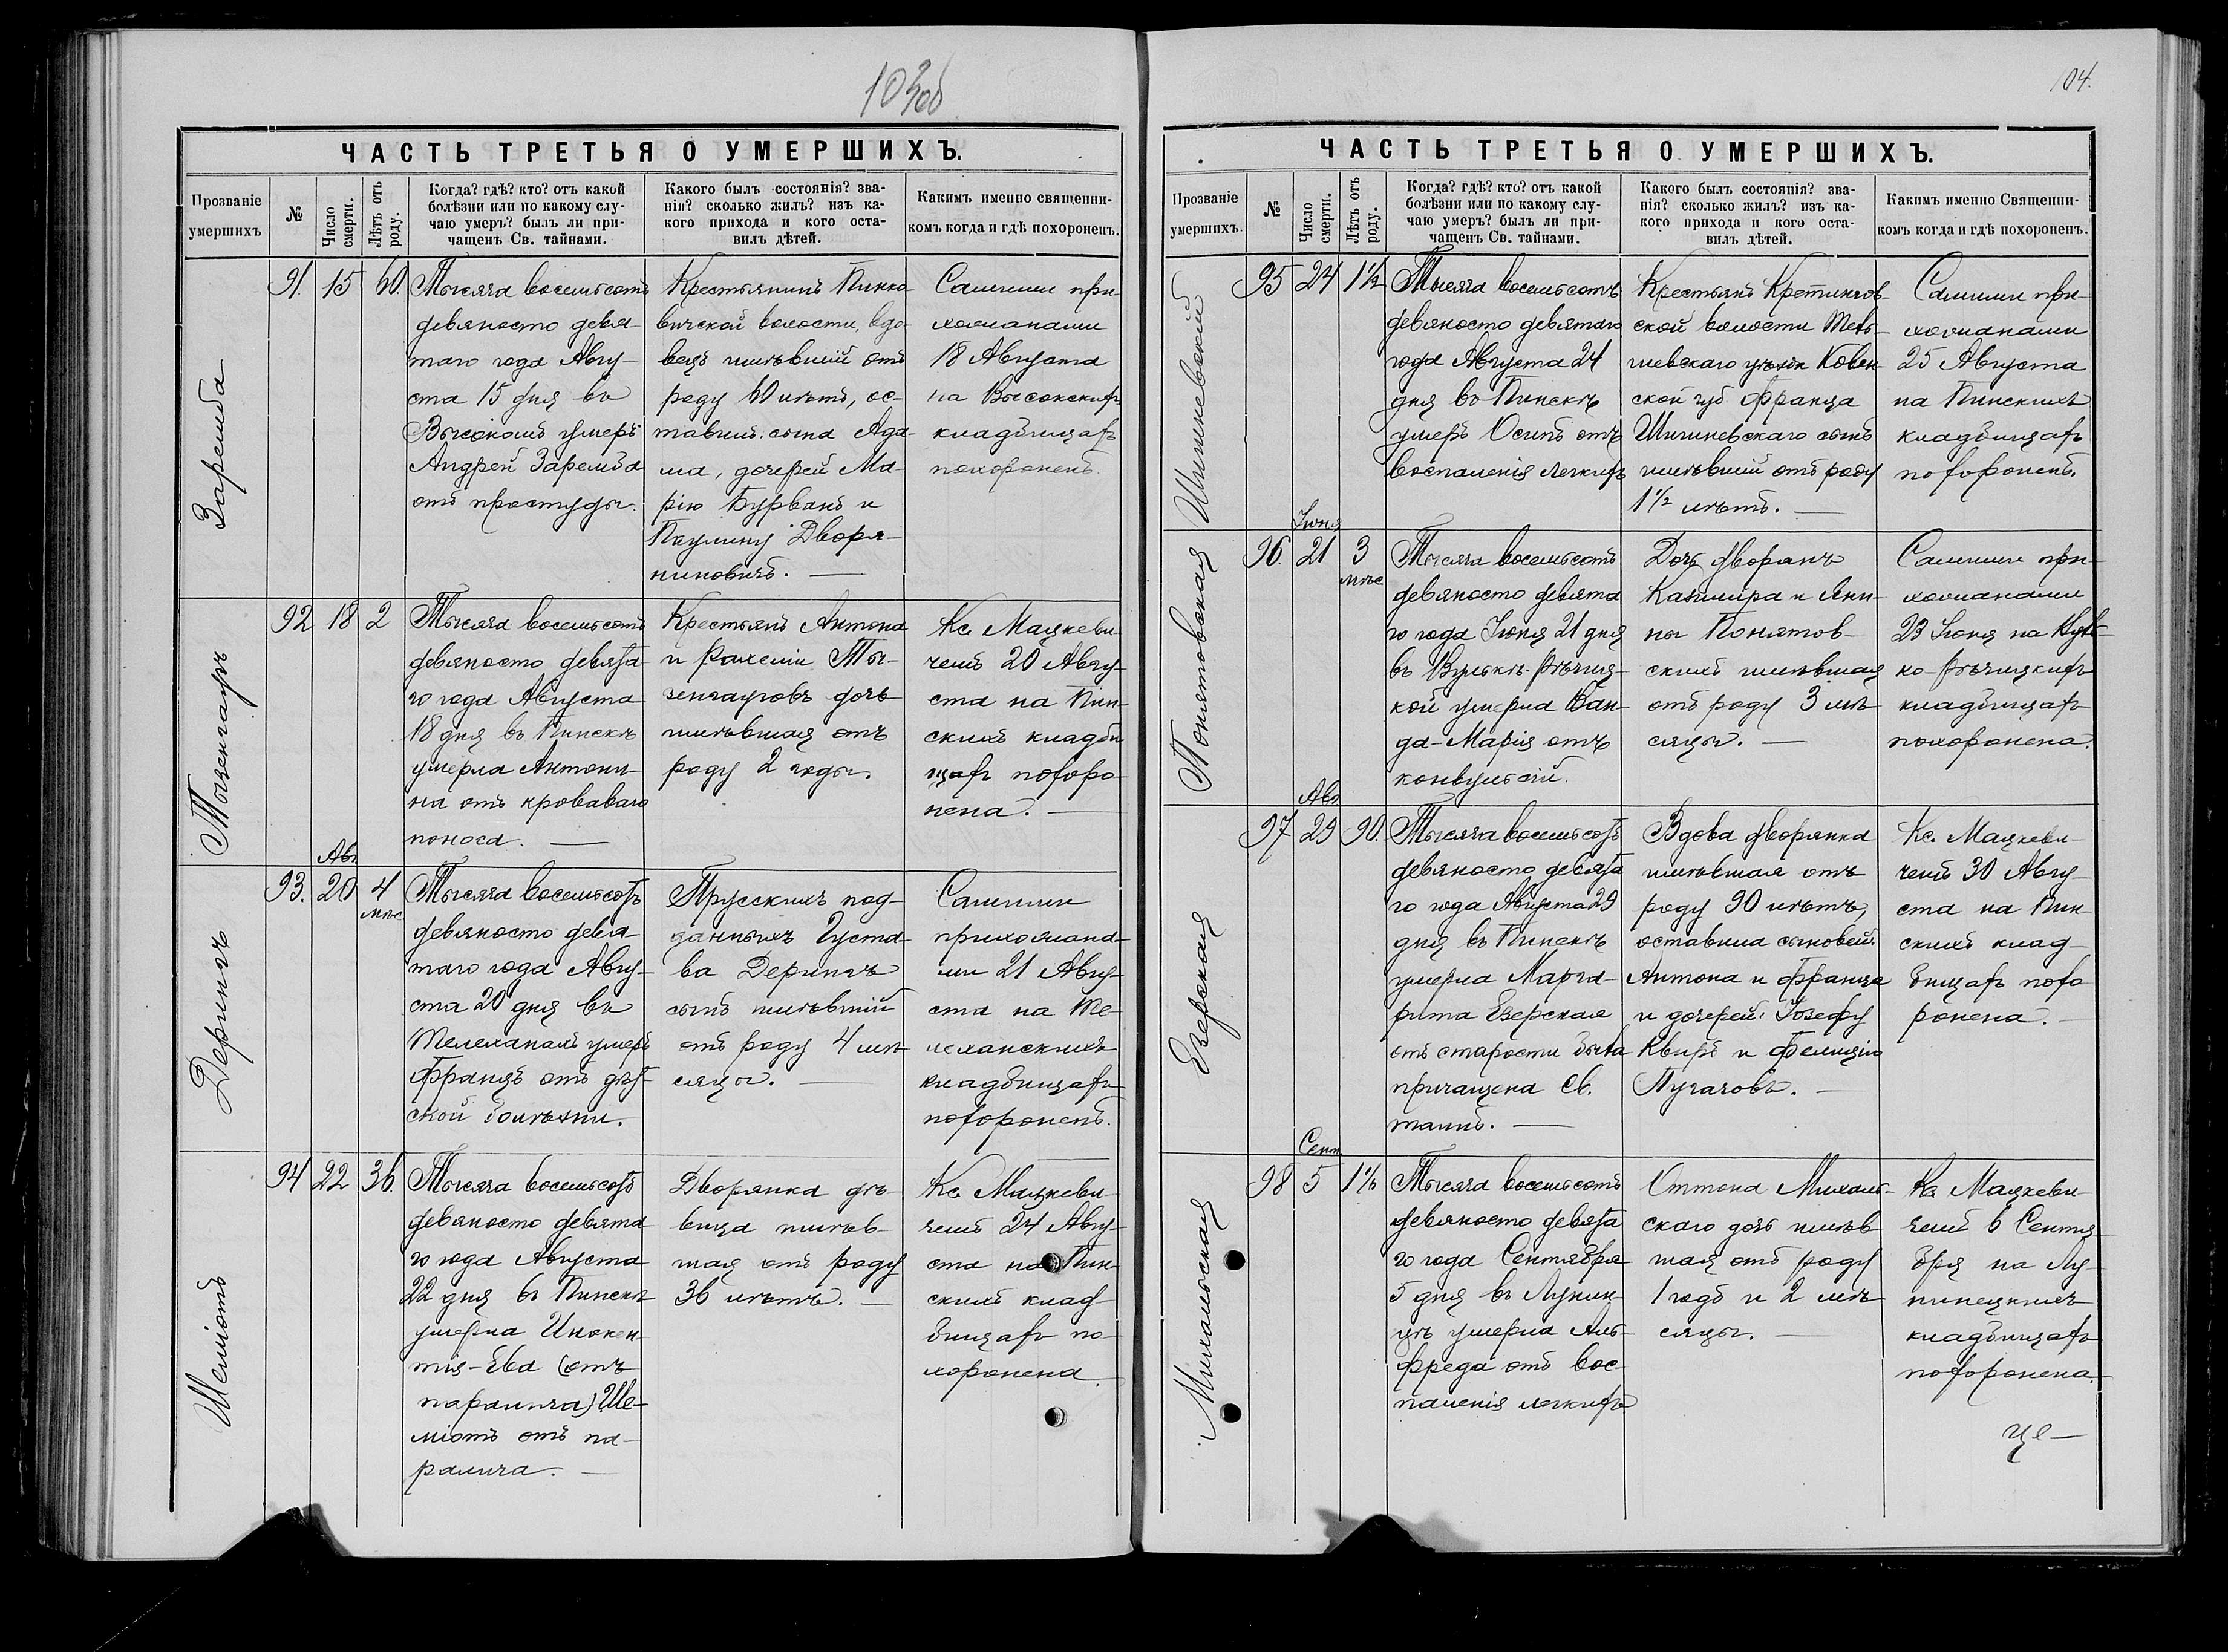 103об
ЧАСТЬ ТРЕТЬЯ О УМЕРШИХЪ.
Прозваніе
умершихъ
№
Число
смерти.
Лѣтъ отъ
роду.
Когда? гдѣ? кто? отъ какой
болѣзни или по какому слу-
чаю умеръ? былъ ли при-
чащенъ Св. тайнами.
Какого былъ состоянія? зва-
нія? сколько жилъ? изъ ка-
кого прихода и кого оста-
вилъ дѣтей.
Какимъ именно священни-
комъ когда и гдѣ похороненъ.
Заремба
91. 15 60.
Тысяча восемьсотъ
девяносто девя-
таго года Авгу-
ста 15 дня въ
Высокомъ умеръ
Андрей Заремба
отъ простуды.
Крестьянинъ Пинко-
вичской волости, вдо-
вецъ имѣвшій отъ
роду 60 лѣтъ, ос-
тавилъ: сына Ада-
ма, дочерей Ма-
рію Бурванъ и
Паулину Дворя-
ниновичъ. —
Самими при-
хожанами
18 Августа
на Высокскихъ
кладбищахъ
похороненъ.
Тызенгаузъ
92 18 2
Тысяча восемьсотъ
девяносто девята-
го года Августа
18 дня въ Пинскѣ
умерла Антони-
на отъ кроваваго
поноса. —
Крестьянъ Антона
и Рахеліи Ты-
зенгаузовъ дочь
имѣвшая отъ
роду 2 годы.
Кс. Мацкеви-
чемъ 20 Авгу-
ста на Пин-
скихъ кладби
щахъ похоро-
нена. —
Дерингъ
Авг.
93. 20 4
мѣс
Тысяча восемьсотъ
девяносто девя-
таго года Авгу-
ста 20 дня въ
Телеханахъ умеръ
Францъ отъ дѣт-
ской болѣзни.
Прусскихъ под-
данныхъ Густа-
ва Дерингъ
сынъ имѣвшій
отъ роду 4 мѣ-
сяцы. —
Самими
прихожана-
ми 21 Авгу-
ста на Те-
леханскихъ
кладбищахъ
похороненъ.
Шеміотъ
94 22 36.
Тысяча восемьсотъ
девяносто девята-
го года Августа
22 дня въ Пинскѣ
умерла Инокен-
тія-Ева (отъ
паралича) Ше-
міотъ отъ па-
ралича. —
Дворянка дѣ-
вица имѣв-
шая отъ роду
36 лѣтъ. —
Кс. Мацкеви-
чемъ 24 Авгу-
ста на Пин-
скихъ клад-
бищахъ по-
хоронена.
104.
ЧАСТЬ ТРЕТЬЯ О УМЕРШИХЪ.
Прозваніе
умершихъ.
№
Число
смерти.
Лѣтъ отъ
роду.
Когда? гдѣ? кто? отъ какой
болѣзни или по какому слу-
чаю умеръ? былъ ли при-
чащенъ Св. тайнами.
Какого былъ состоянія? зва-
нія? сколько жилъ? изъ ка-
кого прихода и кого оста-
вилъ дѣтей.
Какимъ именно Священни-
комъ когда и гдѣ похороненъ.
Шишневскій
95 24 1½
Тысяча восемьсотъ
девяносто девятаго
года Августа 24
дня въ Пинскѣ
умеръ Осипъ отъ
воспаленія легкихъ
Крестьянъ Кретингов-
ской волости Тель-
шевскаго уѣзда Ковен-
ской губ Франца
Шишневскаго сынъ
имѣвшій отъ роду
1½ лѣтъ. —
Самими при-
хожанами
25 Августа
на Пинскихъ
кладбищахъ
похороненъ.
Понятовская
Іюня
96. 21 3
мѣс
Тысяча восемьсотъ
девяносто девята
го года Іюня 21 дня
въ Вулькѣ-Рѣчиц-
кой умерла Ван-
да-Марія отъ
конвульсій.
Дочь дворянъ
Казимира и Яни-
ны Понятов-
скихъ имѣвшая
отъ роду 3 мѣ-
сяцы. —
Самими при-
хожанами
23 Іюня на Вуль-
ко-Рѣчицкихъ
кладбищахъ
похоронена.
Езерская
Авг
97 29 90.
Тысяча восемьсотъ
девяносто девята
го года Августа 29
дня въ Пинскѣ
умерла Марга-
рита Езерская
отъ старости была
причащена Св.
таинъ. —
Вдова дворянка
имѣвшая отъ
роду 90 лѣтъ,
оставила сыновей:
Антона и Франца
и дочерей: Іозефу
Квиръ и Фелицію
Пугачовъ. —
Кс. Мацкеви-
чемъ 30 Авгу-
ста на Пин-
скихъ клад-
бищахъ похо
ронена. —
Михальская
Сент
98 5
Тысяча восемьсотъ
девяносто девята
го года Сентября
5 дня въ Лунин-
цѣ умерла Аль-
фреда отъ вос-
паленія легкихъ
Оттона Михаль-
скаго дочь имѣв
шая отъ роду
1 годъ и 2 мѣ-
сяцы. —
Кс. Мацкеви-
чемъ 6 Сентя-
бря на Лу-
нинецкихъ
кладбищахъ
похоронена.